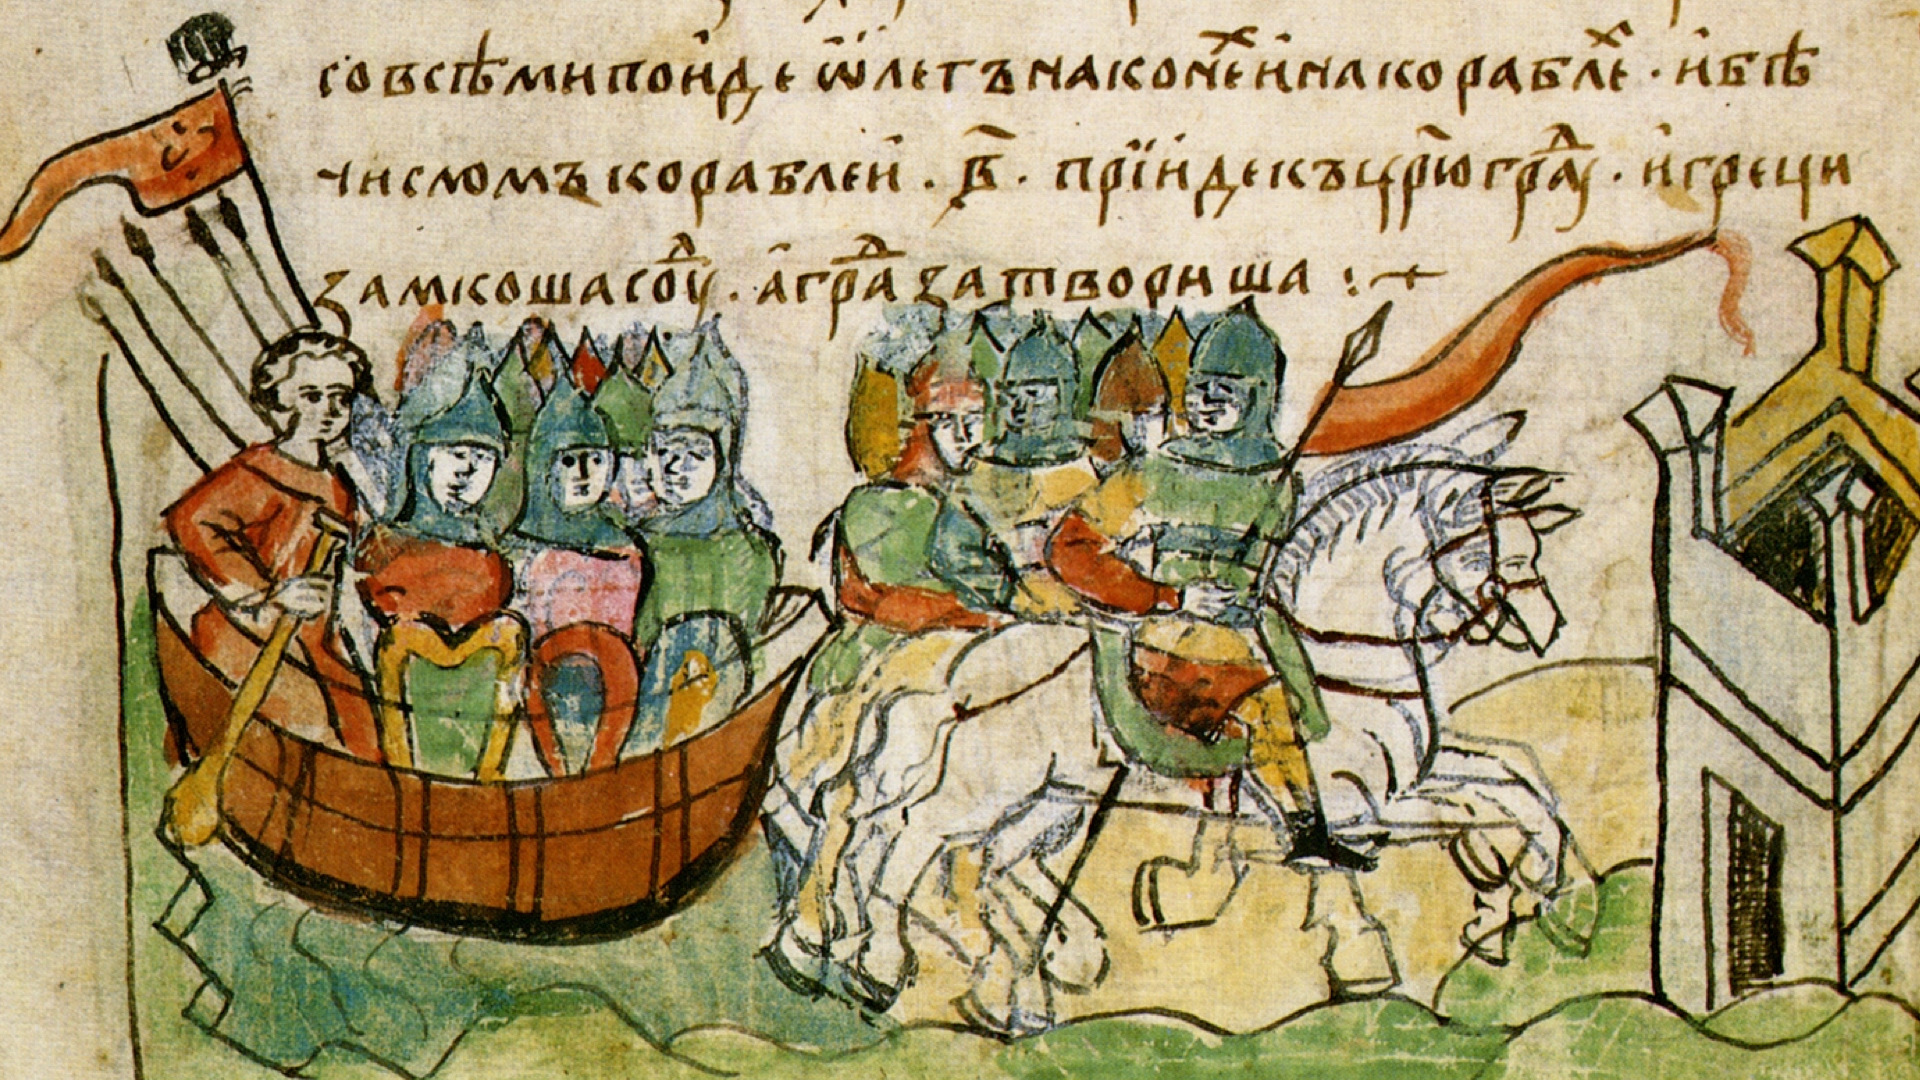 совсѣмипоидеѿлегънаконехинакораблехъ · ибѣ
числомъкораблеи · в҃ · прїидекъцр҃югрⷣау · игреци
замкошасоуⷣ · аграⷣзатвориша :+